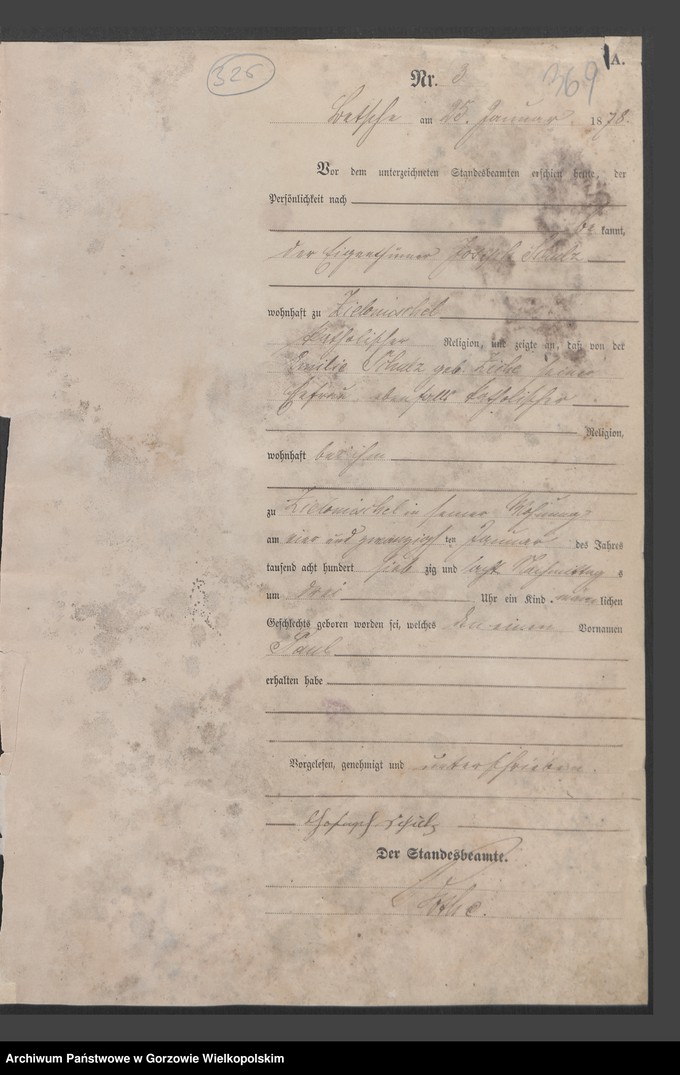 A.
326
369
Nr. 3
Betsche am 25. Januar 1878.
Vor dem unterzeichneten Standesbeamten erschien heute, der
Persönlichkeit nach
be kannt,
der Eigenthümer Joseph Schulz
wohnhaft zu Zielomischel
katholischer Religion, und zeigte an, daß von der
Emilie Schulz geb. seiner
Ehefrau, ebenfalls katholischer
Religion,
wohnhaft bei ihm
zu Zielomischel in seiner Wohnung
am vier und zwanzigsten Januar des Jahres
tausend acht hundert sieb zig und acht Nachmittag s
um drei Uhr ein Kind männlichen
Geschlechts geboren worden sei, welches den einen Vornamen
Paul
erhalten habe
Vorgelesen, genehmigt und unterschrieben.
Schulz
Der Standesbeamte.